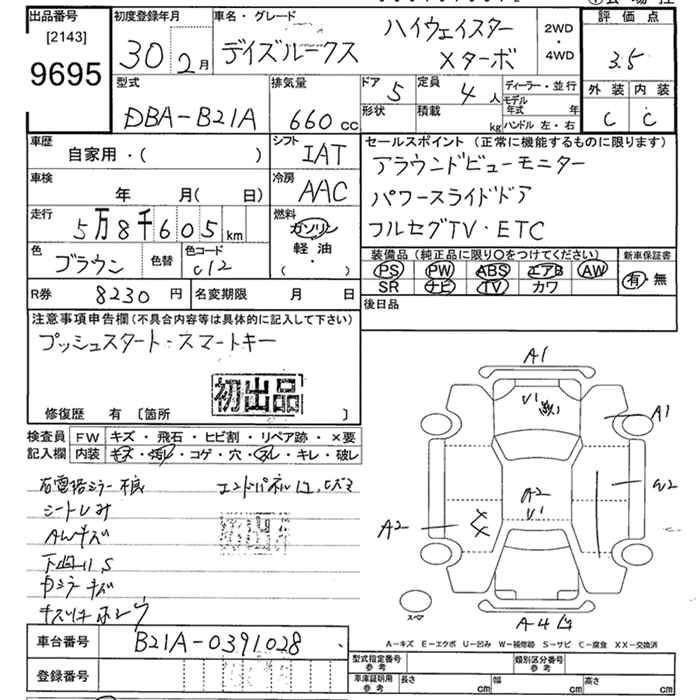 出品番号
[2143]
9695
初度登録年月
30 2月
車名・グレード
デイズルークス
ハイウェイスター
Xターボ
2WD
・
4WD
評価点
3.5
外装 内装
C C
型式
DBA-B21A
排気量
660 cc
ドア 5
定員 4 人
形状
積載 kg
ディーラー・並行
モデル年式 年
ハンドル 左・右
車歴
自家用・( )
シフト
IAT
車検
年 月( 日)
冷房
AAC
走行
5万8千605km
燃料
ガソリン
軽油
( ・ )
色
ブラウン
色替
色コード
C12
R券 8230円
名変期限 月 日
セールスポイント (正常に機能するものに限ります)
アラウンドビューモニター
パワースライドドア
フルセグTV・ETC
装備品 (純正品に限り〇をつけてください)
新車保証書
PS PW ABS エアB AW
SR ナビ TV カワ
有・無
後日品
注意事項申告欄(不具合内容等は具体的に記入して下さい)
プッシュスタート・スマートキー
初出品
修復歴 有 [箇所 ]
検査員記入欄
FW キズ・飛石・ヒビ割・リペア跡・×要
内装 キズ・汚レ・コゲ・穴・スレ・キレ・破レ
シートしみ
AWキズ
初出品
A1
A1
A2
A2
W2
スペア
A-キズ E-エクボ U-凹み W-補修跡 S-サビ C-腐食 XX-交換済
車台番号 B21A-0391028
登録番号
型式指定番号 参考
類別区分番号 参考
車庫証明用 参考
長さ cm 幅 cm 高さ cm